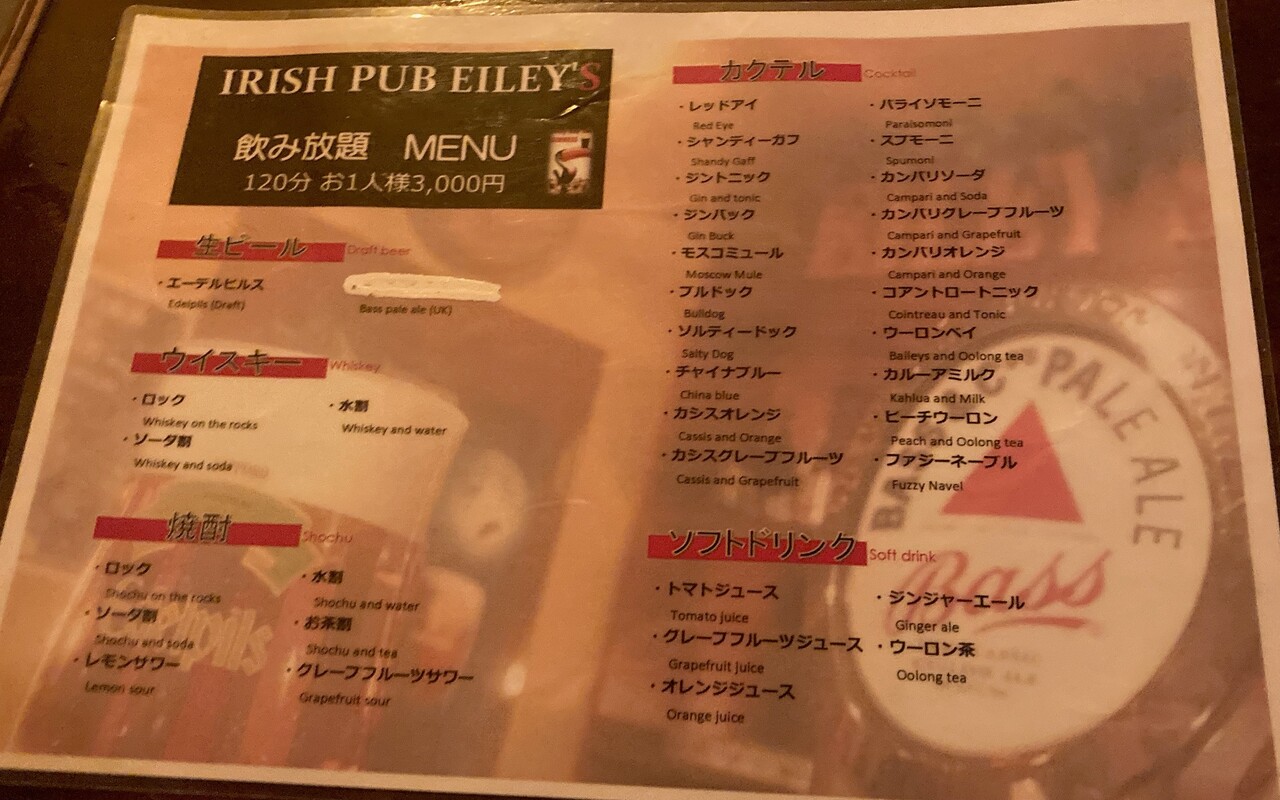 IRISH PUB EILEY'S
飲み放題 MENU
120分 お1人様3,000円
生ビール Draft beer
・エーデルピルス
Edelpils (Draft)
Bass pale ale (UK)
ウイスキー Whiskey
・ロック
Whiskey on the rocks
・水割
Whiskey and water
・ソーダ割
Whiskey and soda
焼酎 Shochu
・ロック
Shochu on the rocks
・水割
Shochu and water
・ソーダ割
Shochu and soda
・お茶割
Shochu and tea
・レモンサワー
Lemon sour
・グレープフルーツサワー
Grapefruit sour
カクテル Cocktail
・レッドアイ
Red Eye
・シャンディーガフ
Shandy Gaff
・ジントニック
Gin and tonic
・ジンバック
Gin Buck
・モスコミュール
Moscow Mule
・ブルドック
Bulldog
・ソルティードック
Salty Dog
・チャイナブルー
China blue
・カシスオレンジ
Cassis and Orange
・カシスグレープフルーツ
Cassis and Grapefruit
・パライソモーニ
Paraisomoni
・スプモーニ
Spumoni
・カンパリソーダ
Campari and Soda
・カンパリグレープフルーツ
Campari and Grapefruit
・カンパリオレンジ
Campari and Orange
・コアントロートニック
Cointreau and Tonic
・ウーロンベイ
Baileys and Oolong tea
・カルーアミルク
Kahlua and Milk
・ピーチウーロン
Peach and Oolong tea
・ファジーネーブル
Fuzzy Navel
ソフトドリンク Soft drink
・トマトジュース
Tomato juice
・グレープフルーツジュース
Grapefruit juice
・オレンジジュース
Orange juice
・ジンジャーエール
Ginger ale
・ウーロン茶
Oolong tea
PALE ALE
Bass